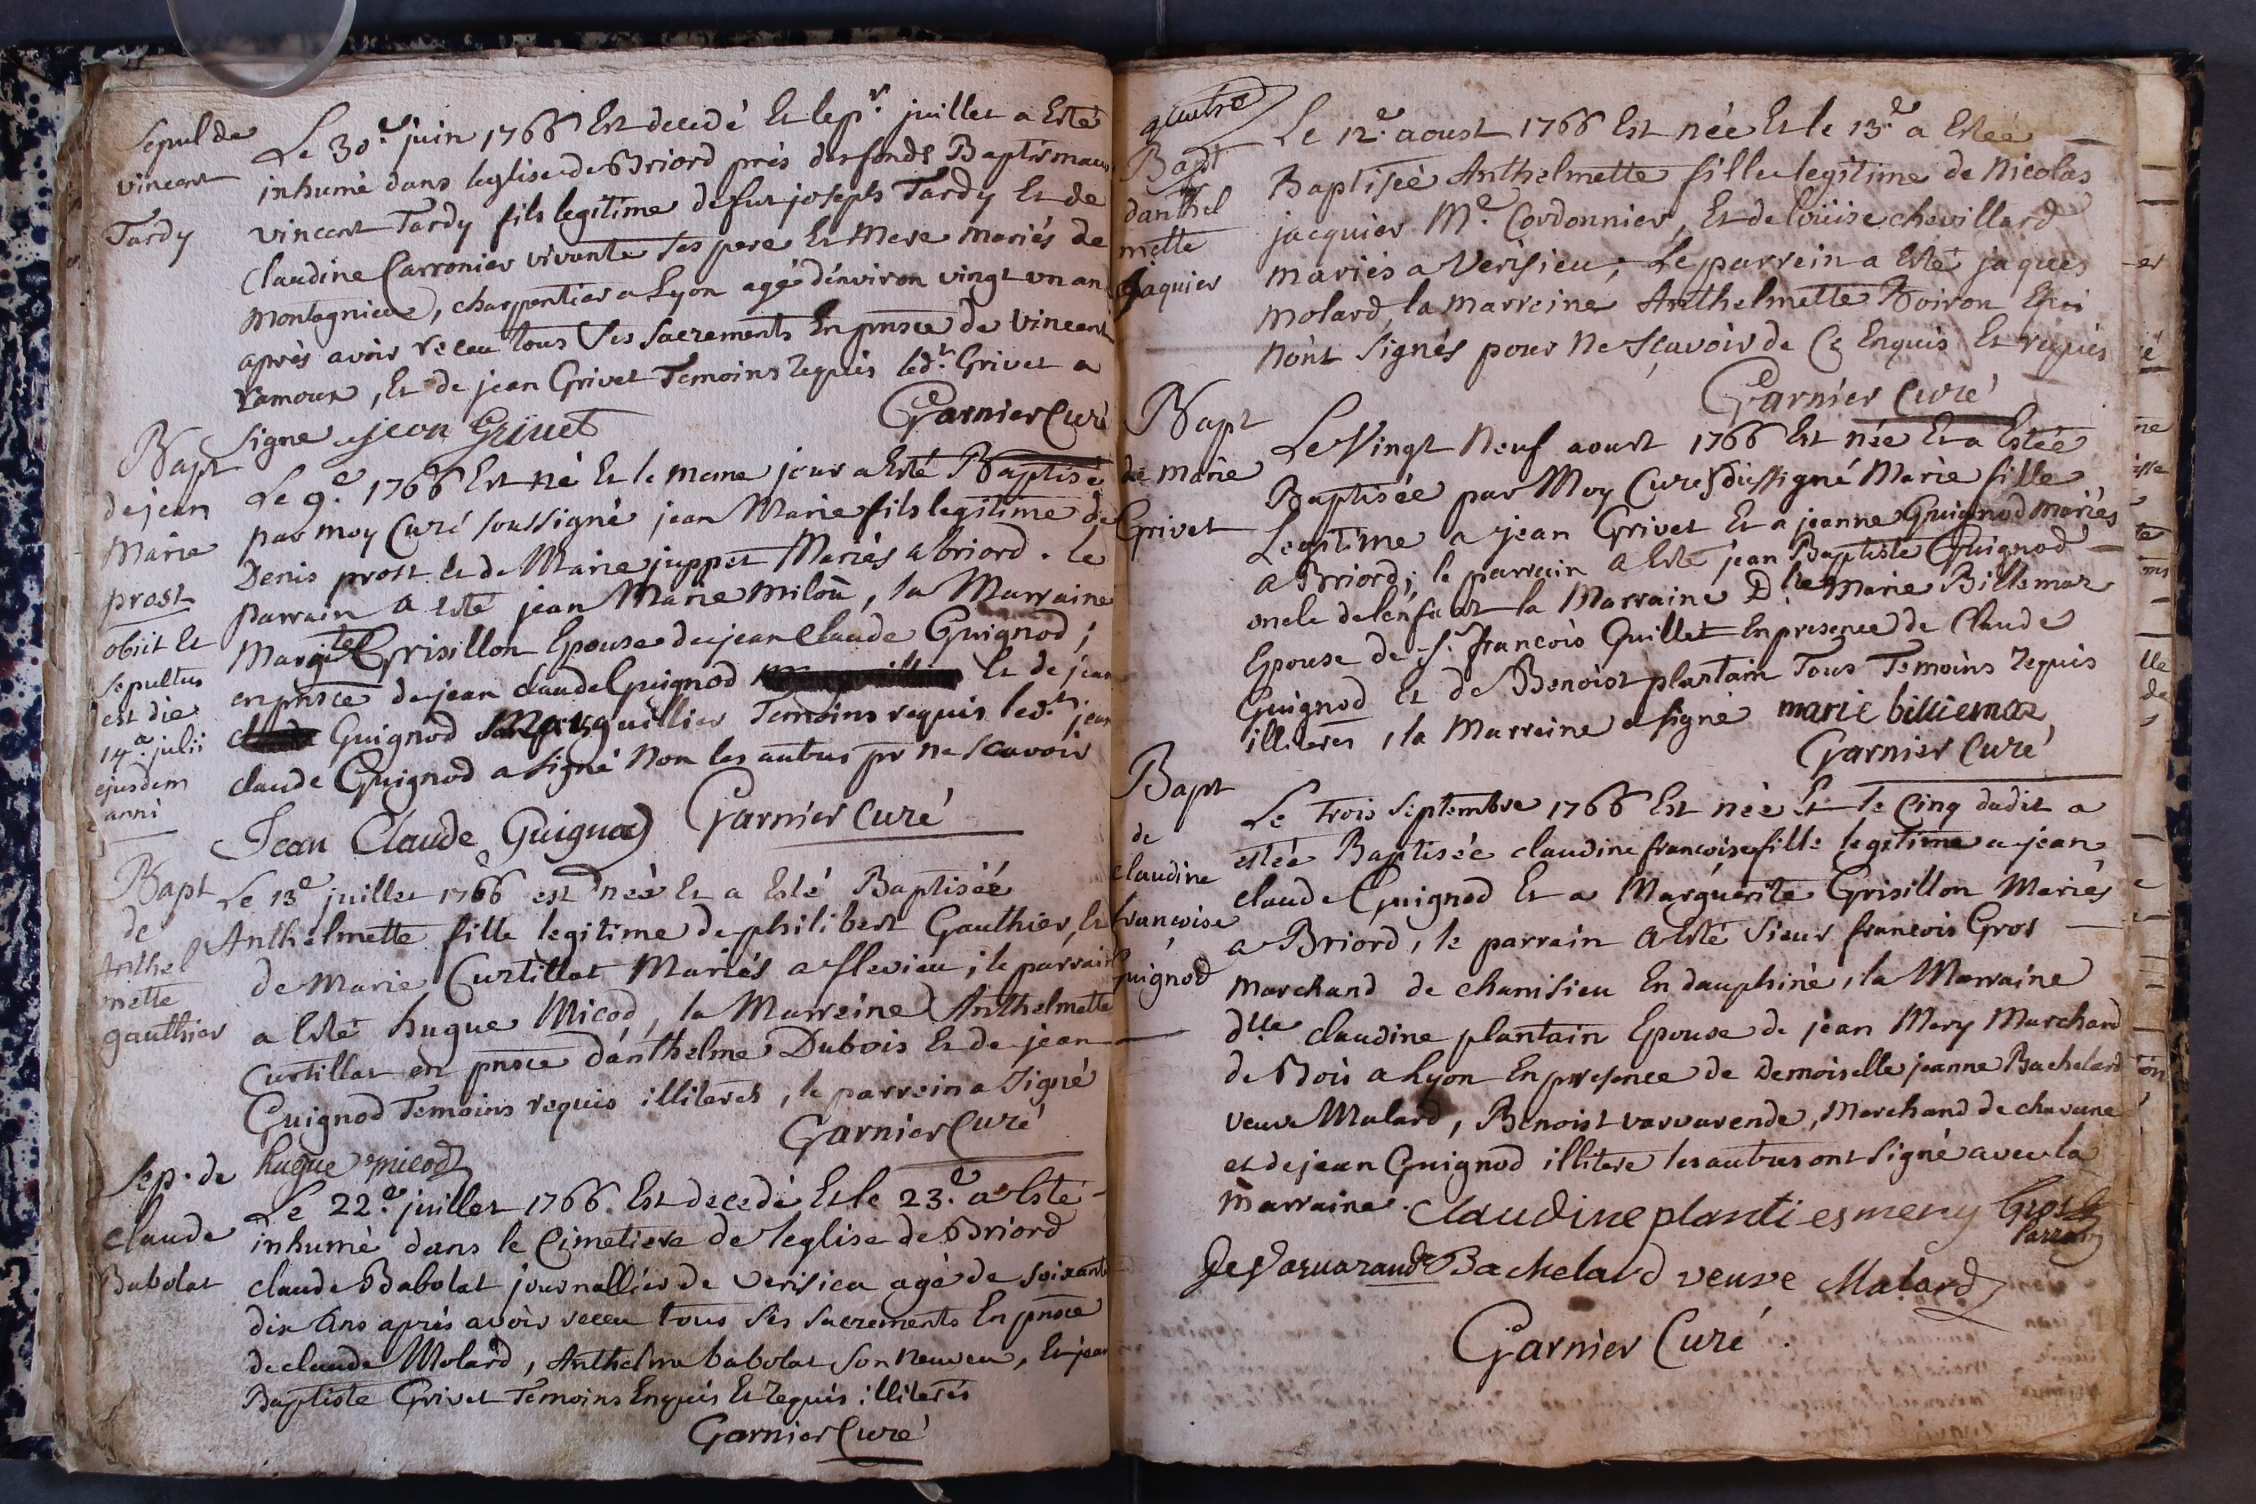 Sepul de
vincent
Tardy
Le 30.e juin 1766 Est decedé Et le pr. juillet a Esté
inhumé dans leglise de Briord prés des fonds Baptismaux
vincent Tardy fils legitime de fut joseph Tardy Et de
Claudine Carronier vivante ses pere Et Mere Mariés de
Montagnieu, charpentier a Lyon agé d'environ vingt un an
aprés avoir receu tous Ses Sacrements En pnsce de Vincent
Ramoux, Et de jean Grivet Temoins requis led.t Grivet a
signe jean Grivet Garnier Curé
Bapt
de jean
Marie
prost
obiit Et
sepultus
est die
14a. julii
ejusdem
anni
Le 9.e 1766 Est né Et le meme jour a Esté Baptisé
par moy Curé soussigné jean Marie fils legitime de
Denis prost Et de Marie juppet Mariés a briord. Le
parrain a esté jean Marie milon, la Marraine
Margte Grisillon Epouse de jean Claude Guignod;
en pnsce de jean claude Guignod Et de jean
Guignod Marguillier Temoins requis led.t jean
claude Guignod a signé Non les autres pr ne scavoir
Jean Claude Guignod Garnier Curé
Bapt
de
Anthel
mette
gauthier
Le 13e juillet 1766 est née Et a Esté Baptisée
Anthelmette fille legitime de philibert Gauthier, Et
de Marie Curtillat Mariés a flevieu; le parrain
a Esté hugue Micod, la Marreine Anthelmette
Curtillat en pnsce d'anthelme Dubois Et de jean
Guignod Temoins requis illiterés, le parrein a signé
Garnier Curé
hugue micod
Sep. de
claude
Babolat
Le 22.e juillet 1766. Est decedé Et le 23.e a Esté
inhumé dans le Cimetiere de leglise de Briord
claude Babolat journallier de verisieu agé de soixante
dix ans aprés avoir receu tous ses sacrements En pnsce
de claude Molard, Anthelme babolat son neuveu, Et jean
Baptiste Grivet Temoins Enquis Et requis illiterés
Garnier Curé
quatre
Bapt
danthel
mette
jaquier
Le 12.e aoust 1766 Est née Et le 13.e a Estée
Baptisée Anthelmette fille legitime de Nicolas
jacquier M.e Cordonnier, Et de loüise chevillard
mariés a Verisieu; Le parrein a Esté jaques
Molard, la marreine Anthelmette Boiron Qui
n'ont signés pour ne sçavoir de Ce Enquis Et requis
Garnier Curé
Bapt
de marie
Grivet
Le Vingt Neuf aoust 1766 Est née Et a Estée
Baptisée par Moy Curé Sussigné Marie fille
Legitime a jean Grivet Et a jeanne Guignod Mariés
a Briord; le parrain a Esté jean Baptiste Guignod
oncle de lenfant la Marraine D.lle Marie Billemaz
Epouse de S.r francois Quillet En presence de Claude
Guignod Et de Benoist plantain Tous Temoins requis
illiterés, la Marreine a signé marie billiemaz
Garnier Curé
Bapt
de
claudine
francoise
Guignod
Le trois Septembre 1766 Est née Et le Cinq dudit a
estée Baptisée claudine francoise fille legitime a jean
claude Guignod Et a Marguerite Grisillon Mariés
a Briord, le parrain a Esté Sieur francois Gros
Marchand de chanisieu En dauphiné, la Marraine
dlle claudine plantain Epouse de jean Mery Marchand
de Bois a Lyon En presence de Demoiselle jeanne Bachelard
veuve Malard, Benoist varvarende, Marchand de
et de jean Guignod illitere les autres ont signé avec la
marraine. Claudine planti es meny Gros
Parrain
Bachelard veuve Malard
Garnier Curé.